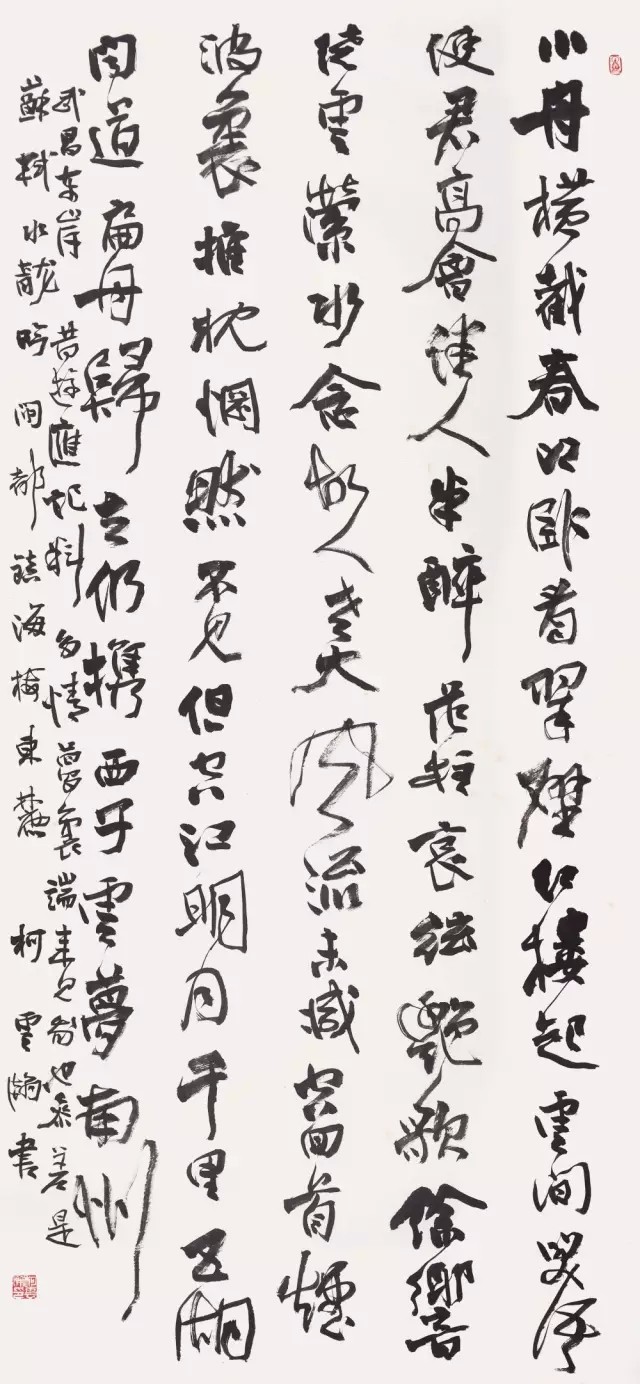 小舟橫截春江臥看翠壁紅樓起雲間笑語
使君高會佳人半醉危柱哀絃艷歌餘響
繞雲縈水念故人老大風流未減空回首煙
波裏推枕惘然不見但空江明月千里五湖
聞道扁舟歸去仍攜西子雲夢南州
武昌东岸昔遊應記料多情夢裏端来見我也參差是
蘇軾水龍吟閩都鎮海梅東麓柯雲瀚書